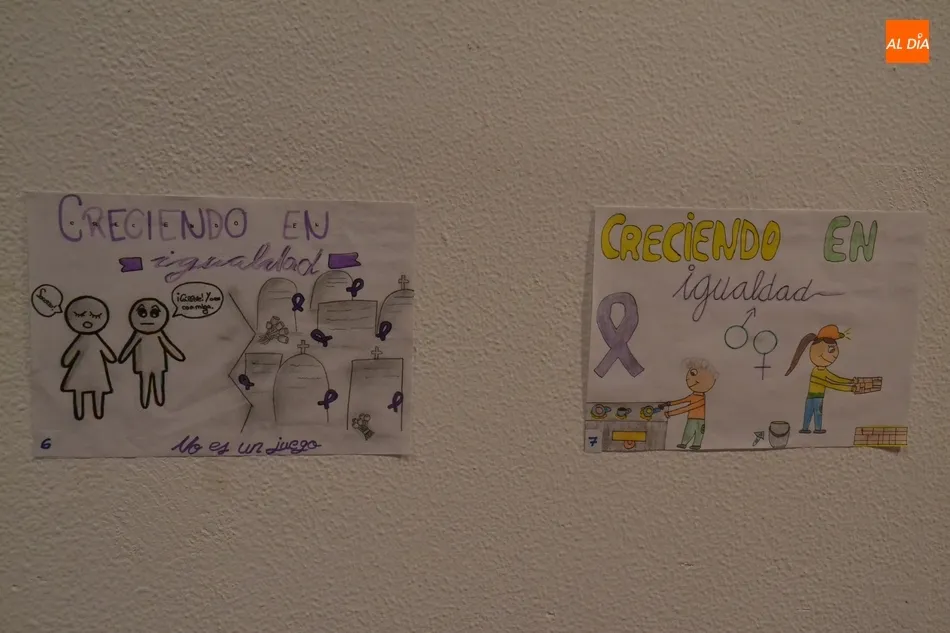 AL DÍA
CRECIENDO EN
igualdad
con migo.
6
No es un juego
CRECIENDO EN
igualdad
7